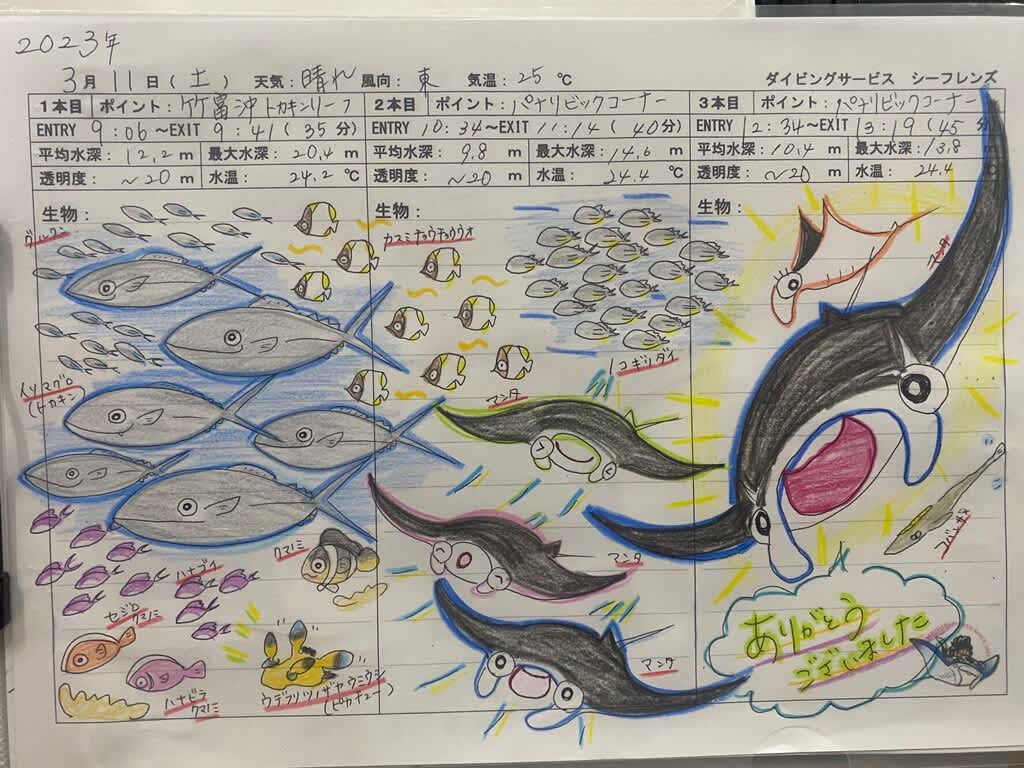 2023年
3月 11日(土) 天気:晴れ 風向:東 気温:25℃ ダイビングサービス シーフレンズ
1本目 ポイント:竹富沖トカキンリーフ
ENTRY 9:06~EXIT 9:41(35分)
平均水深:12.2m 最大水深:20.4m
透明度:~20m 水温:24.2℃
生物:
グルクン
イソマグロ
(トカキン)
クマノミ
ハナゴイ
セジロ
クマノミ
ハナビラ
クマノミ
ウデフリツノザヤウミウシ
(ピカチュー)
2本目 ポイント:パナリビックコーナー
ENTRY 10:34~EXIT 11:14(40分)
平均水深:9.8m 最大水深:14.6m
透明度:~20m 水温:24.4℃
生物:
カスミチョウチョウウオ
ノコギリダイ
マンタ
マンタ
マンタ
3本目 ポイント:パナリビックコーナー
ENTRY 12:34~EXIT 13:19(45分)
平均水深:10.4m 最大水深:13.8m
透明度:~20m 水温:24.4
生物:
マンタ
コバンザメ
ありがとう
ございました